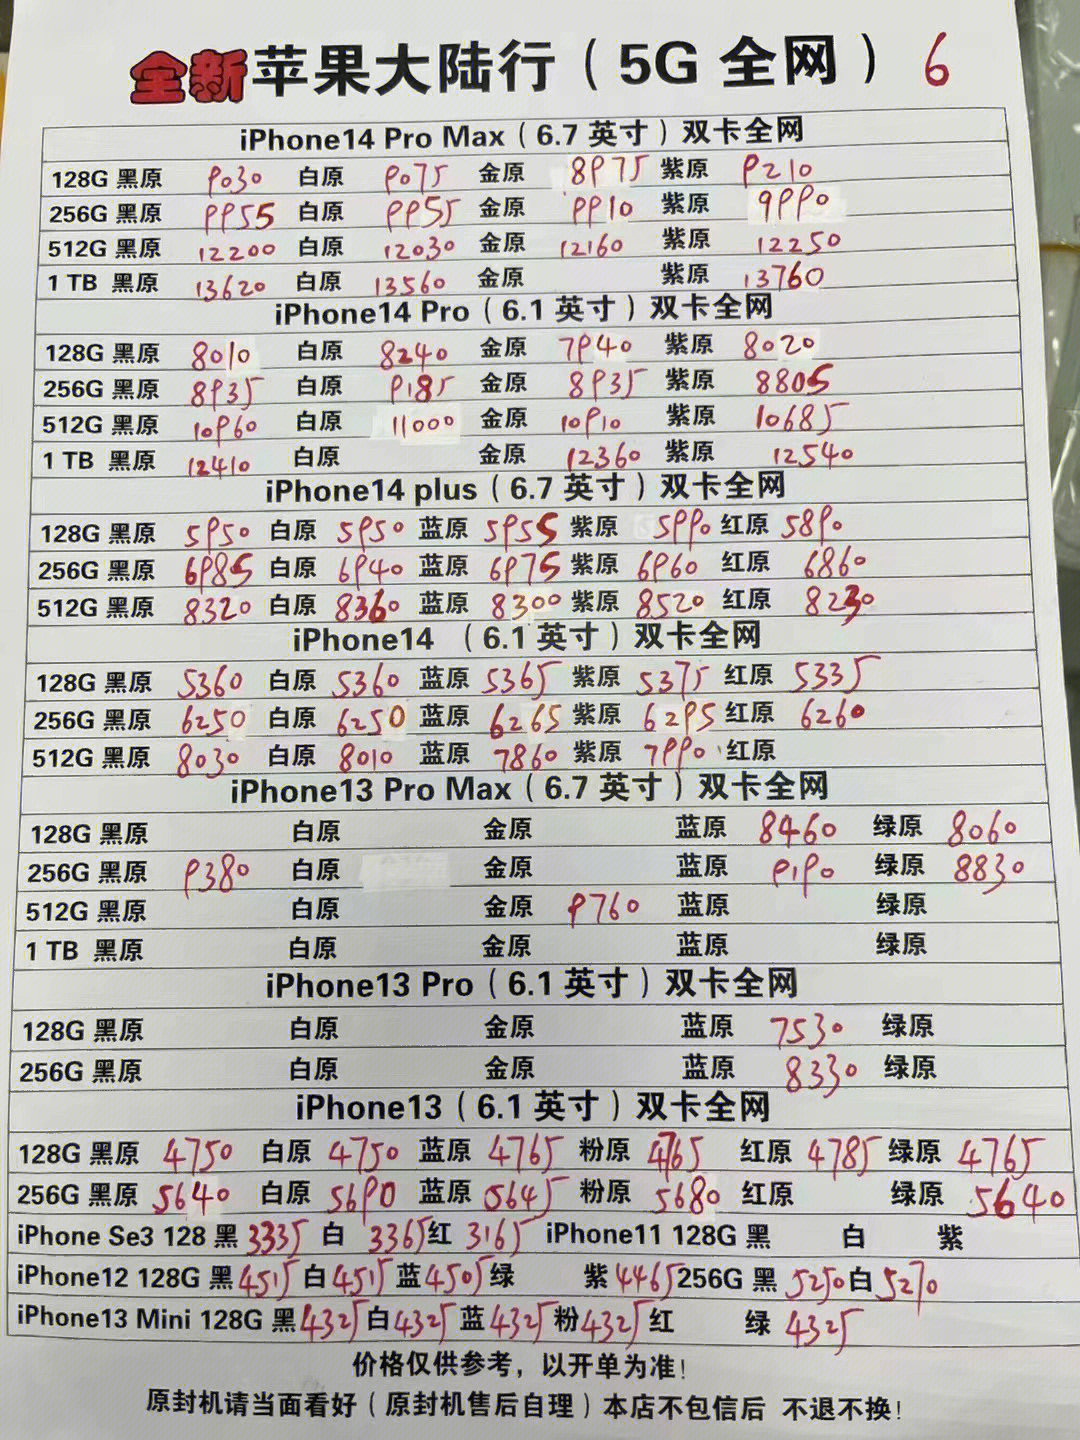 全新苹果大陆行（5G 全网） 6
iPhone14 Pro Max（6.7 英寸）双卡全网
128G 黑原 9030 白原 9075 金原 8975 紫原 9210
256G 黑原 9955 白原 9955 金原 9910 紫原 9990
512G 黑原 12200 白原 12030 金原 12160 紫原 12250
1 TB 黑原 13620 白原 13560 金原 紫原 13760
iPhone14 Pro（6.1 英寸）双卡全网
128G 黑原 8010 白原 8240 金原 7940 紫原 8020
256G 黑原 8935 白原 9185 金原 8935 紫原 8805
512G 黑原 10960 白原 11000 金原 10910 紫原 10685
1 TB 黑原 12410 白原 金原 12360 紫原 12540
iPhone14 plus（6.7 英寸）双卡全网
128G 黑原 5950 白原 5950 蓝原 5955 紫原 5990 红原 5890
256G 黑原 6985 白原 6940 蓝原 6975 紫原 6960 红原 6860
512G 黑原 8320 白原 8360 蓝原 8300 紫原 8520 红原 8230
iPhone14 （6.1 英寸）双卡全网
128G 黑原 5360 白原 5360 蓝原 5365 紫原 5375 红原 5335
256G 黑原 6250 白原 6250 蓝原 6265 紫原 6295 红原 6260
512G 黑原 8030 白原 8010 蓝原 7860 紫原 7990 红原
iPhone13 Pro Max（6.7 英寸）双卡全网
128G 黑原 白原 金原 蓝原 8460 绿原 8060
256G 黑原 9380 白原 金原 蓝原 9190 绿原 8830
512G 黑原 白原 金原 9760 蓝原 绿原
1 TB 黑原 白原 金原 蓝原 绿原
iPhone13 Pro（6.1 英寸）双卡全网
128G 黑原 白原 金原 蓝原 7530 绿原
256G 黑原 白原 金原 蓝原 8330 绿原
iPhone13（6.1 英寸）双卡全网
128G 黑原 4750 白原 4750 蓝原 4765 粉原 4765 红原 4785 绿原 4765
256G 黑原 5640 白原 5690 蓝原 5645 粉原 5680 红原 绿原 5640
iPhone Se3 128 黑 3335 白 3365 红 3165 iPhone11 128G 黑 白 紫
iPhone12 128G 黑 4515 白 4515 蓝 4505 绿 紫 4465 256G 黑 5250 白 5270
iPhone13 Mini 128G 黑 4325 白 4325 蓝 4325 粉 4325 红 绿 4325
价格仅供参考，以开单为准！
原封机请当面看好（原封机售后自理）本店不包信后 不退不换！